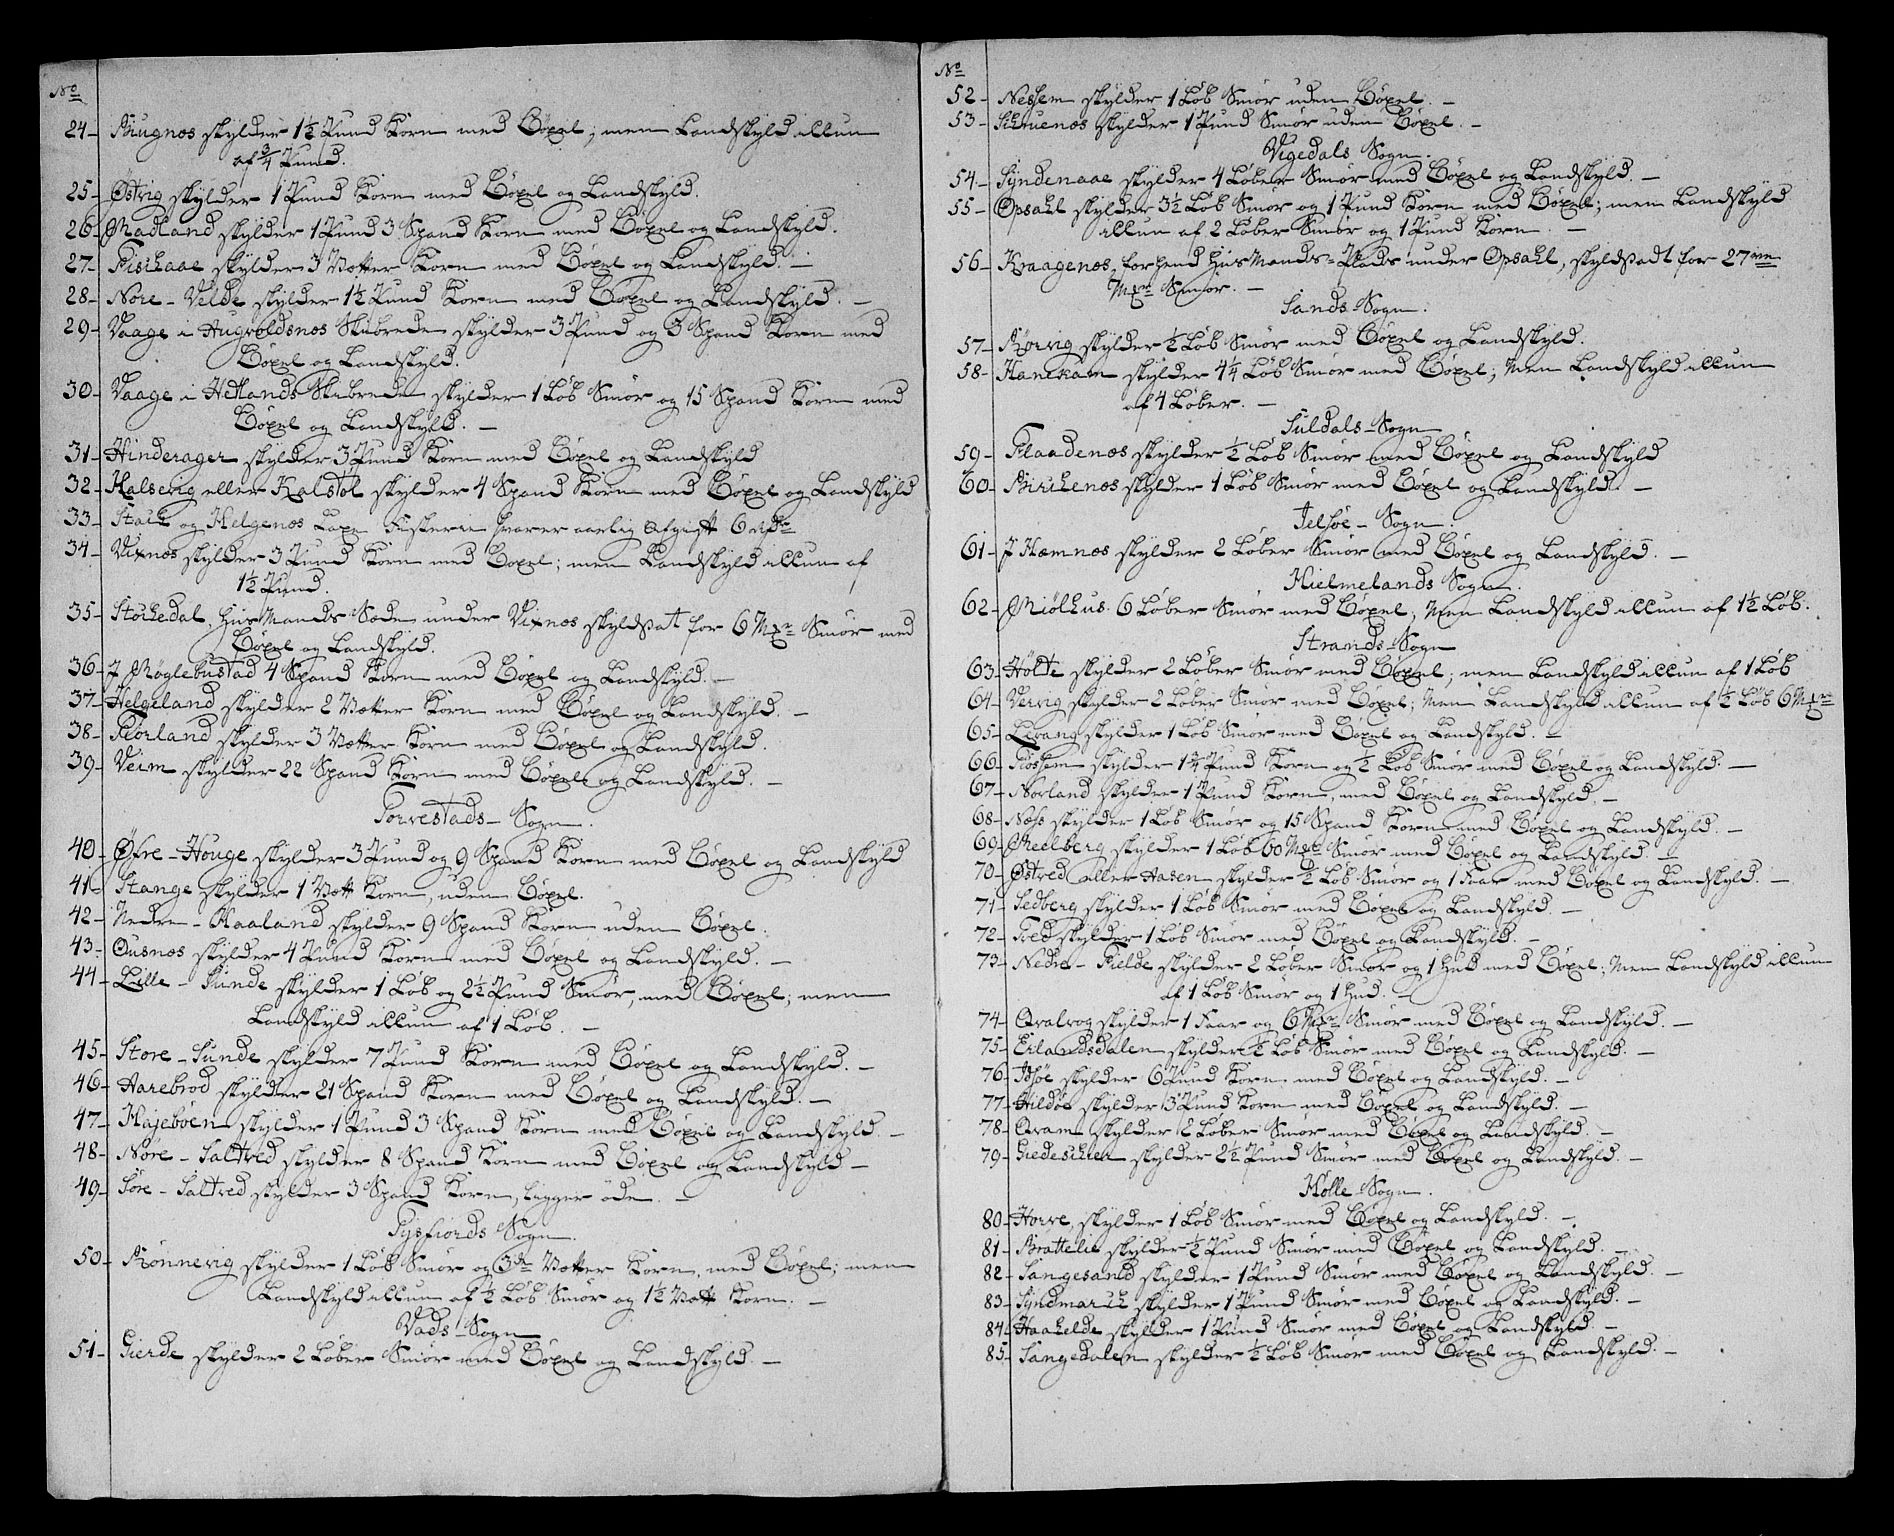 No
24- Bugnes skylder 1½ Pund Korn med Böxel; men Landskyld allun
af ¾ Pund.
25- Østvig skylder 1 Pund Korn med Böxel og Landskyld.
26- Madland skylder 1 Pund 3 Spand Korn med Böxel og Landskyld.
27- Fiskaae skylder 3 Vætter Korn med Böxel og Landskyld. -
28- Nøre-Velde skylder 1½ Pund Korn med Böxel og Landskyld. -
29- Vaage i Augvoldsnes Skibrede skylder 3 Pund og 3 Spand Korn med
Böxel og Landskyld.
30- Vaage i Hetlands Skibrede skylder 1 Löb Smör og 15 Spand Korn med
Böxel og Landskyld. -
31- Hinderager skylder 3 Pund Korn med Böxel og Landskyld
32- Kalsevig eller Kalstöl skylder 4 Spand Korn med Böxel og Landskyld
33- og Helgenes Laxe Fiskerie svarer aarlig Afgift 6 Rdr
34- Vixnes skylder 3 Pund Korn med Böxel; men Landskyld allun af
1½ Pund.
35- Stokkedal, HuusMands Sæde under Vixnes skyldsat for 6 Mxr Smör med
Böxel og Landskyld.
36- J Möglebustad 4 Spand Korn med Böxel og Landskyld. -
37- Helgeland skylder 2 Vætter Korn med Böxel og Landskyld. -
38- Förland skylder 3 Vætter Korn med Böxel og Landskyld.
39- Veim skylder 22 Spand Korn med Böxel og Landskyld. -
Torvestads-Sogn.
40- Øfre-Houge skylder 3 Pund og 9 Spand Korn med Böxel og Landskyld
41- Stange skylder 1 Vætt Korn, uden Böxel.
42- Nedre-Haaland skylder 9 Spand Korn uden Böxel.
43- Ousnes skylder 4 Pund Korn med Böxel og Landskyld. -
44- Lille-Sunde skylder 1 Löb og 2½ Pund Smör, med Böxel; men
Landskyld allun af 1 Löb. -
45- Store-Sunde skylder 7 Pund Korn med Böxel og Landskyld. -
46- Aarebrod skylder 21 Spand Korn med Böxel og Landskyld. -
47- Hajeböen skylder 1 Pund 3 Spand Korn med Böxel og Landskyld. -
48- Nøre-Saltved skylder 8 Spand Korn med Böxel og Landskyld -
49- Söre-Saltved skylder 3 Spand Korn, ligger öde. -
Tysfiords Sogn.
50- Rönnevig skylder 1 Löb Smör og 3de Vætter Korn, med Böxel; men
Landskyld allun af ½ Löb Smör og 1½ Vætt Korn. -
Vads-Sogn
51- Gierde skylder 2 Löber Smör med Böxel og Landskyld. -
No
52- Nessem skylder 1 Löb Smör uden Böxel. -
53- Skruenes skylder 1 Pund Smör uden Böxel. -
Vigedals Sogn.
54- Syndenaae skylder 4 Löber Smör med Böxel og Landskyld. -
55- Opsahl skylder 3½ Löb Smör og 1 Pund Korn med Böxel; men Landskyld
allun af 2 Löber Smör og 1 Pund Korn. -
56- Kraagenes, forhend HuusMands-Plads under Opsahl, skyldsadt for 27ve
Mxr Smör. -
Sands-Sogn.
57- Rörvig skylder ½ Löb Smör med Böxel og Landskyld.
58- Hanekam skylder 4¼ Löb Smör med Böxel; Men Landskyld allun
af 4 Löber. -
Suldals-Sogn
59- Flaadenes skylder ½ Löb Smör med Böxel og Landskyld
60- Birkenes skylder 1 Löb Smör med Böxel og Landskyld. -
Jelsöe-Sogn.
61- J Hæmnes skylder 2 Löber Smör med Böxel og Landskyld. -
Hielmelands Sogn.
62- Miölhus 6 Löber Smör med Böxel, Men Landskyld allun af 1½ Löb.
Strands-Sogn
63- Holte skylder 2 Löber Smör med Böxel; men Landskyld allun af 1 Löb
64- Vervig skylder 2 Löber Smör med Böxel; Men Landskyld allun af ½ Löb 6 Mxr
65- Levang skylder 1 Löb Smör med Böxel og Landskyld. -
66- Fossem skylder 1¼ Pund Korn og ½ Löb Smör med Böxel og Landskyld. -
67- Norland skylder 1 Pund Korn, med Böxel og Landskyld. -
68- Næss skylder 1 Löb Smör og 15 Spand Korn med Böxel og Landskyld. -
69- Meelberg skylder 1 Löb 60 Mxr Smör med Böxel og Landskyld. -
70- Østred eller Aasen skylder ½ Löb Smör og 1 Faar med Böxel og Landskyld. -
71- Sedberg skylder 1 Löb Smör med Böxel og Landskyld. -
72- Tred skylder 1 Löb Smör med Böxel og Landskyld. -
73- Nedre-Fielde skylder 2 Löber Smör og 1 Hud med Böxel; Men Landskyld allun
af 1 Löb Smör og 1 Hud. -
74- Qvalvog skylder 1 Faar og 6 Mxr Smör med Böxel og Landskyld. -
75- Erlandsdalen skylder ½ Löb Smör med Böxel og Landskyld. -
76- Idsöe skylder 6 Pund Korn med Böxel og Landskyld. -
77- Hildöe skylder 3 Pund Korn med Böxel og Landskyld. -
78- Qvam skylder 2 Löber Smör med Böxel og Landskyld. -
79- Giedeschien skylder 2½ Pund Smör med Böxel og Landskyld. -
Holle-Sogn.
80- Horve, skylder 1 Löb Smör med Böxel og Landskyld. -
81- Brattelie skylder ½ Pund Smör med Böxel og Landskyld. -
82- Sangesand skylder 1 Pund Smör med Böxel og Landskyld. -
83- Syndmarck skylder 1 Pund Smör med Böxel og Landskyld. -
84- Haahelde skylder 1 Pund Smör med Böxel og Landskyld. -
85- Sangedalen skylder ½ Löb Smör med Böxel og Landskyld. -